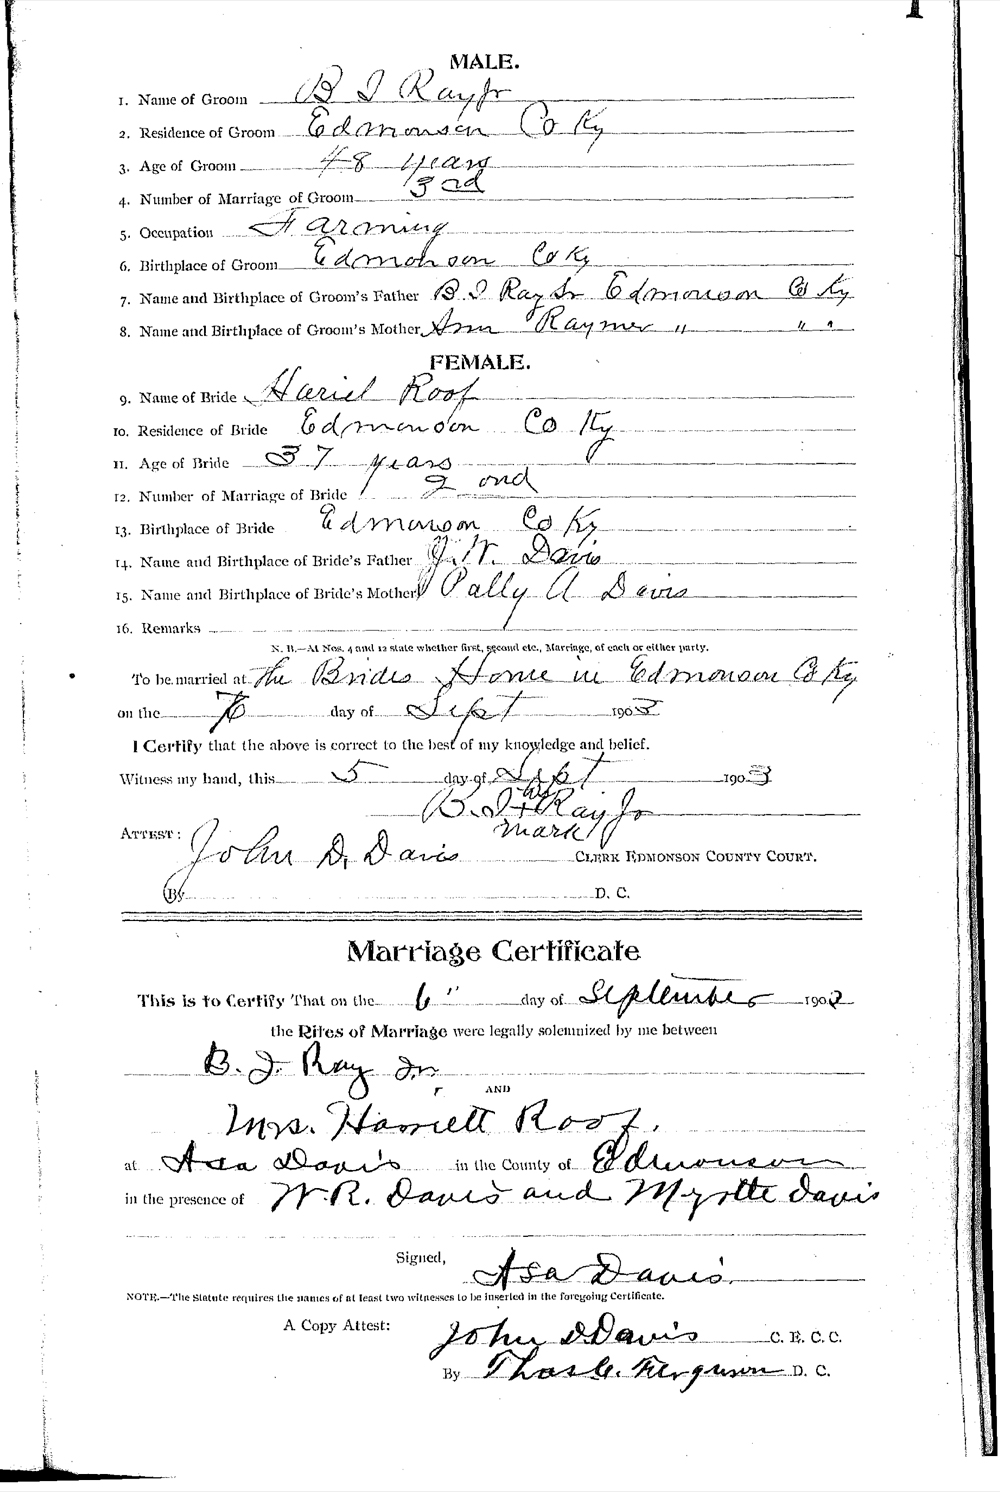 MALE.
1. Name of Groom B I Ray Jr
2. Residence of Groom Edmonson Co Ky
3. Age of Groom 48 years
4. Number of Marriage of Groom 3rd
5. Occupation Farming
6. Birthplace of Groom Edmonson Co Ky
7. Name and Birthplace of Groom's Father B. I Ray Sr Edmonson Co Ky
8. Name and Birthplace of Groom's Mother Ann Raymer " " "
FEMALE.
9. Name of Bride Hariel Roof
10. Residence of Bride Edmonson Co Ky
11. Age of Bride 37 years
12. Number of Marriage of Bride 2 ond
13. Birthplace of Bride Edmonson Co Ky
14. Name and Birthplace of Bride's Father J. W. Davis
15. Name and Birthplace of Bride's Mother Pally A Davis
16. Remarks
N. B.—At Nos. 4 and 12 state whether first, second etc., Marriage, of each or either party.
To be married at the Brides Home in Edmonson Co Ky
on the day of Sept 1903
I Certify that the above is correct to the best of my knowledge and belief.
Witness my hand, this 5 day of Sept 1903
his
B. I + Ray Jr
mark
ATTEST:
John D. Davis CLERK EDMONSON COUNTY COURT.
By D. C.
Marriage Certificate
This is to Certify That on the 6" day of September 190
the Rites of Marriage were legally solemnized by me between
B. I. Ray Jr.
AND
Mrs. Harriett Roof.
at Asa Davis in the County of Edmonson
in the presence of W. R. Davis and Myrtte Davis
Signed,
Asa Davis.
NOTE.—The Statute requires the names of at least two witnesses to be inserted in the foregoing Certificate.
A Copy Attest:
John D. Davis C. E. C. C.
By Thos C. Ferguson D. C.